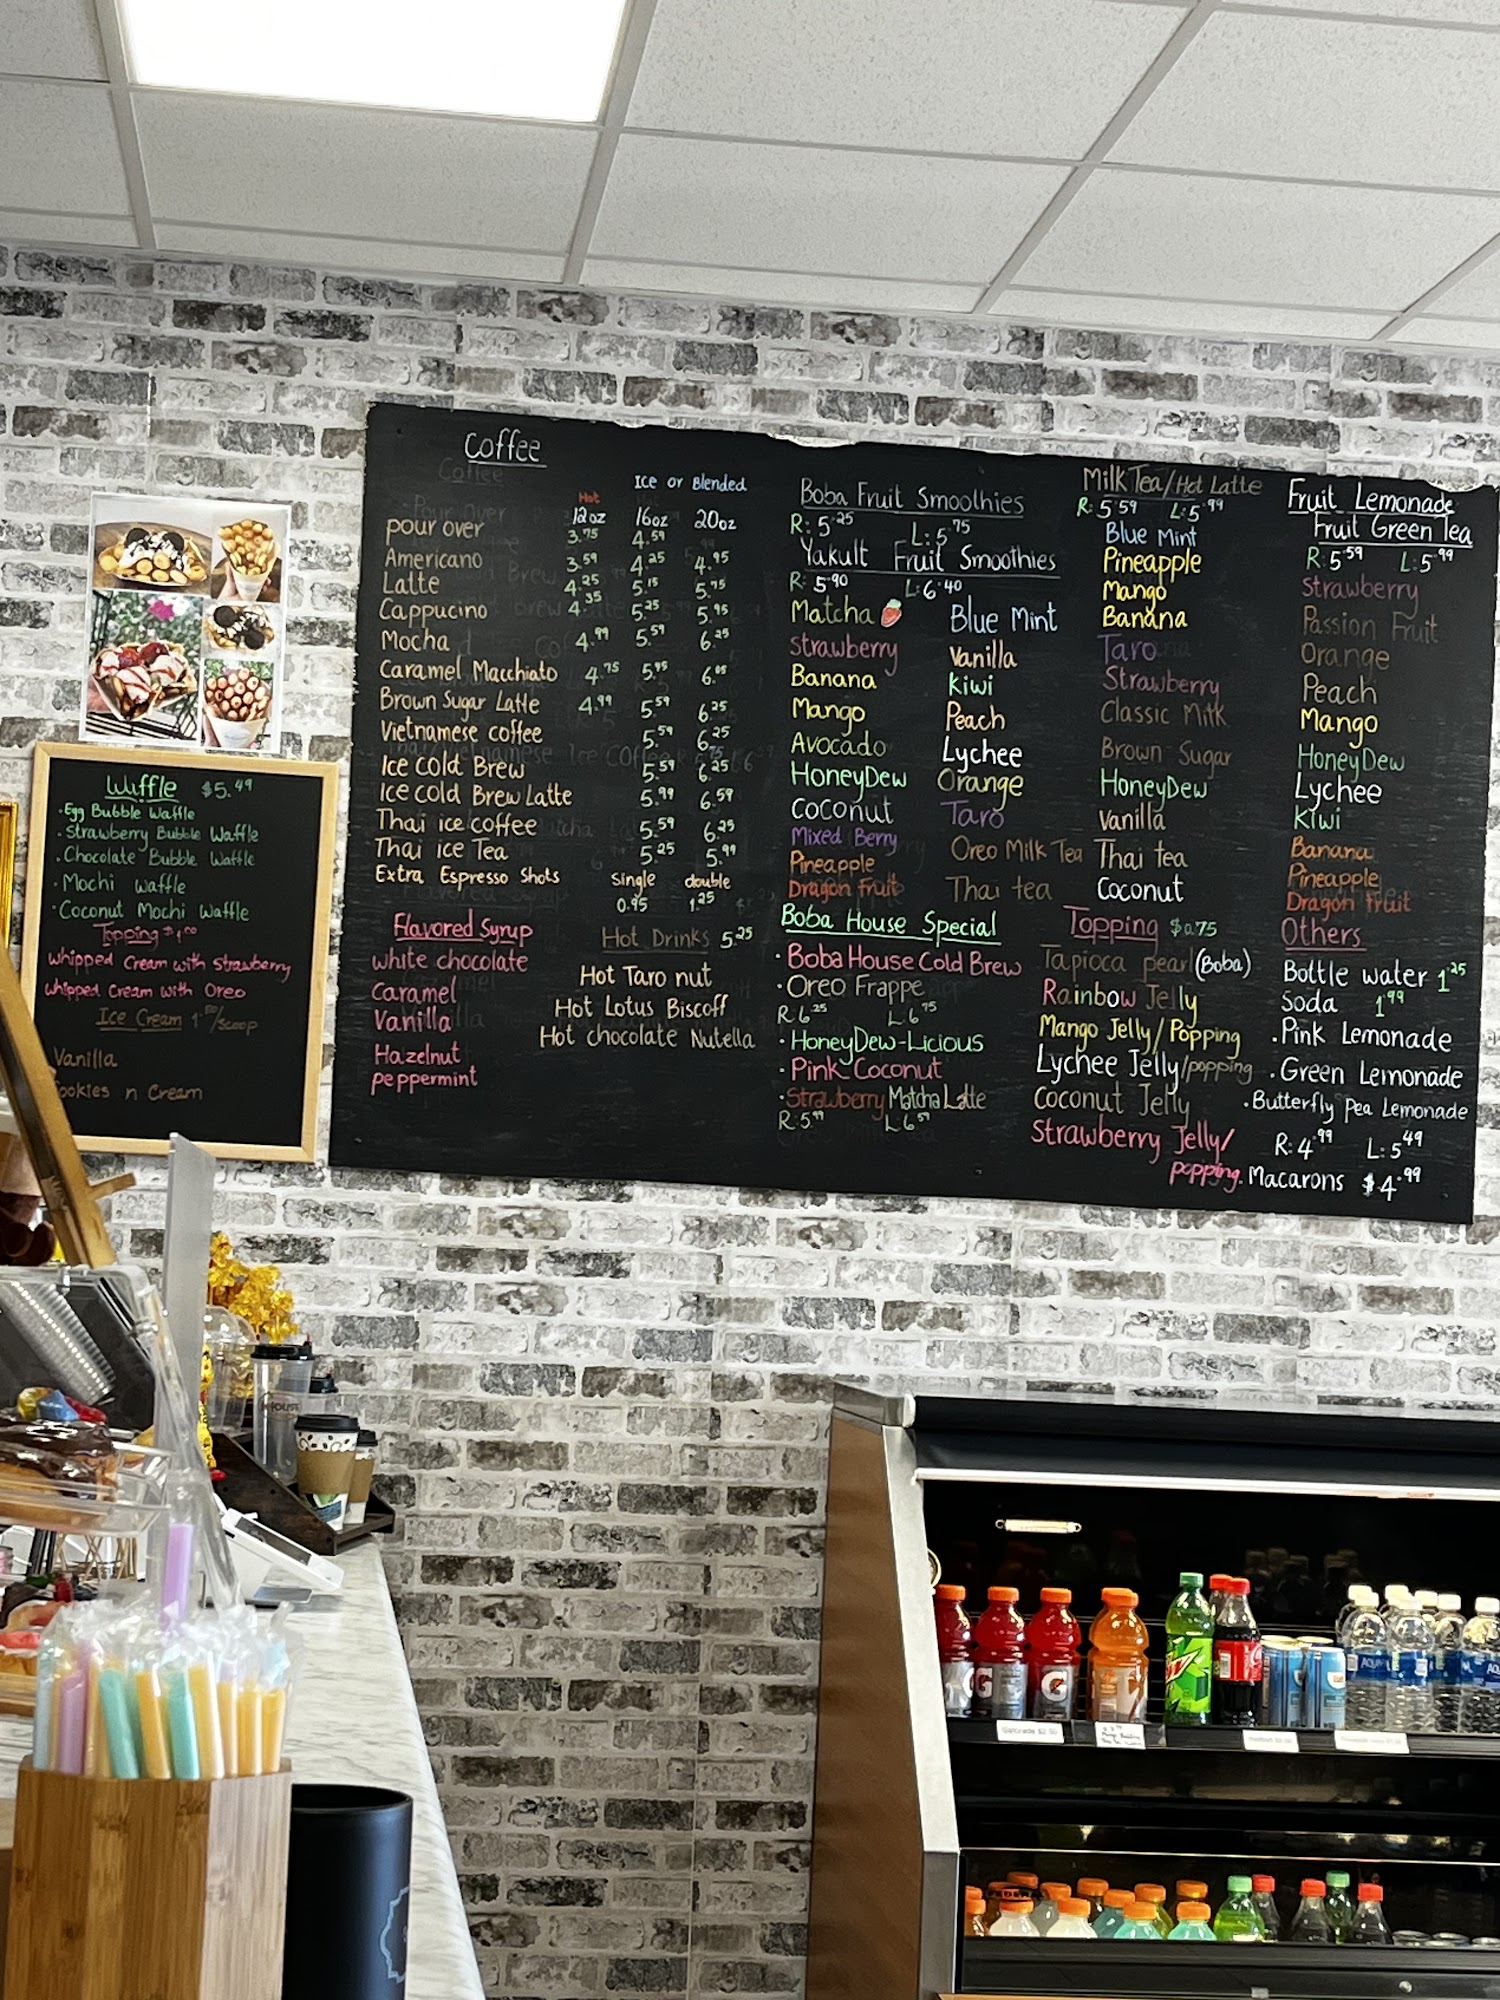 Coffee
Hot Ice or Blended
12oz 16oz 20oz
pour over 3.75 4.59
Americano 3.59 4.25 4.95
Latte 4.25 5.15 5.75
Cappucino 4.35 5.25 5.95
Mocha 4.99 5.59 6.25
Caramel Macchiato 4.75 5.95
Brown Sugar Latte 4.99 5.59 6.25
Vietnamese coffee 5.59 6.25
Ice cold Brew 5.59 6.25
Ice cold Brew Latte 5.99 6.59
Thai ice coffee 5.59 6.25
Thai ice Tea 5.25 5.99
Extra Espresso Shots Single double
0.95 1.25
Flavored Syrup
white chocolate
Caramel
Vanilla
Hazelnut
peppermint
Hot Drinks 5.25
Hot Taro nut
Hot Lotus Biscoff
Hot chocolate Nutella
Boba Fruit Smoothies
R: 5.25 L: 5.75
Yakult Fruit Smoothies
R: 5.90 L: 6.40
Matcha Blue Mint
Strawberry Vanilla
Banana Kiwi
Mango Peach
Avocado Lychee
HoneyDew Orange
Coconut Taro
Mixed Berry Oreo Milk Tea
Pineapple Thai tea
Dragon Fruit
Boba House Special
· Boba House Cold Brew
· Oreo Frappe
R 6.25 L 6.75
· HoneyDew-Licious
· Pink Coconut
· Strawberry Matcha Latte
R 5.99 L 6.59
Milk Tea/Hot Latte
R: 5.59 L: 5.99
Blue Mint
Pineapple
Mango
Banana
Taro
Strawberry
Classic Milk
Brown Sugar
HoneyDew
Vanilla
Thai tea
Coconut
Topping $0.75
Tapioca pearl (Boba)
Rainbow Jelly
Mango Jelly/Popping
Lychee Jelly/popping
Coconut Jelly
Strawberry Jelly/
popping
Fruit Lemonade
Fruit Green Tea
R: 5.59 L: 5.99
Strawberry
Passion Fruit
Orange
Peach
Mango
HoneyDew
Lychee
Kiwi
Banana
Pineapple
Dragon Fruit
Others
Bottle water 1.25
Soda 1.99
· Pink Lemonade
· Green Lemonade
· Butterfly Pea Lemonade
R: 4.99 L: 5.49
· Macarons $4.99
Waffle $5.49
· Egg Bubble Waffle
· Strawberry Bubble Waffle
· Chocolate Bubble Waffle
· Mochi Waffle
· Coconut Mochi Waffle
Topping $1.00
Whipped Cream with Strawberry
Whipped Cream with Oreo
Ice Cream /scoop
Vanilla
ookies n Cream